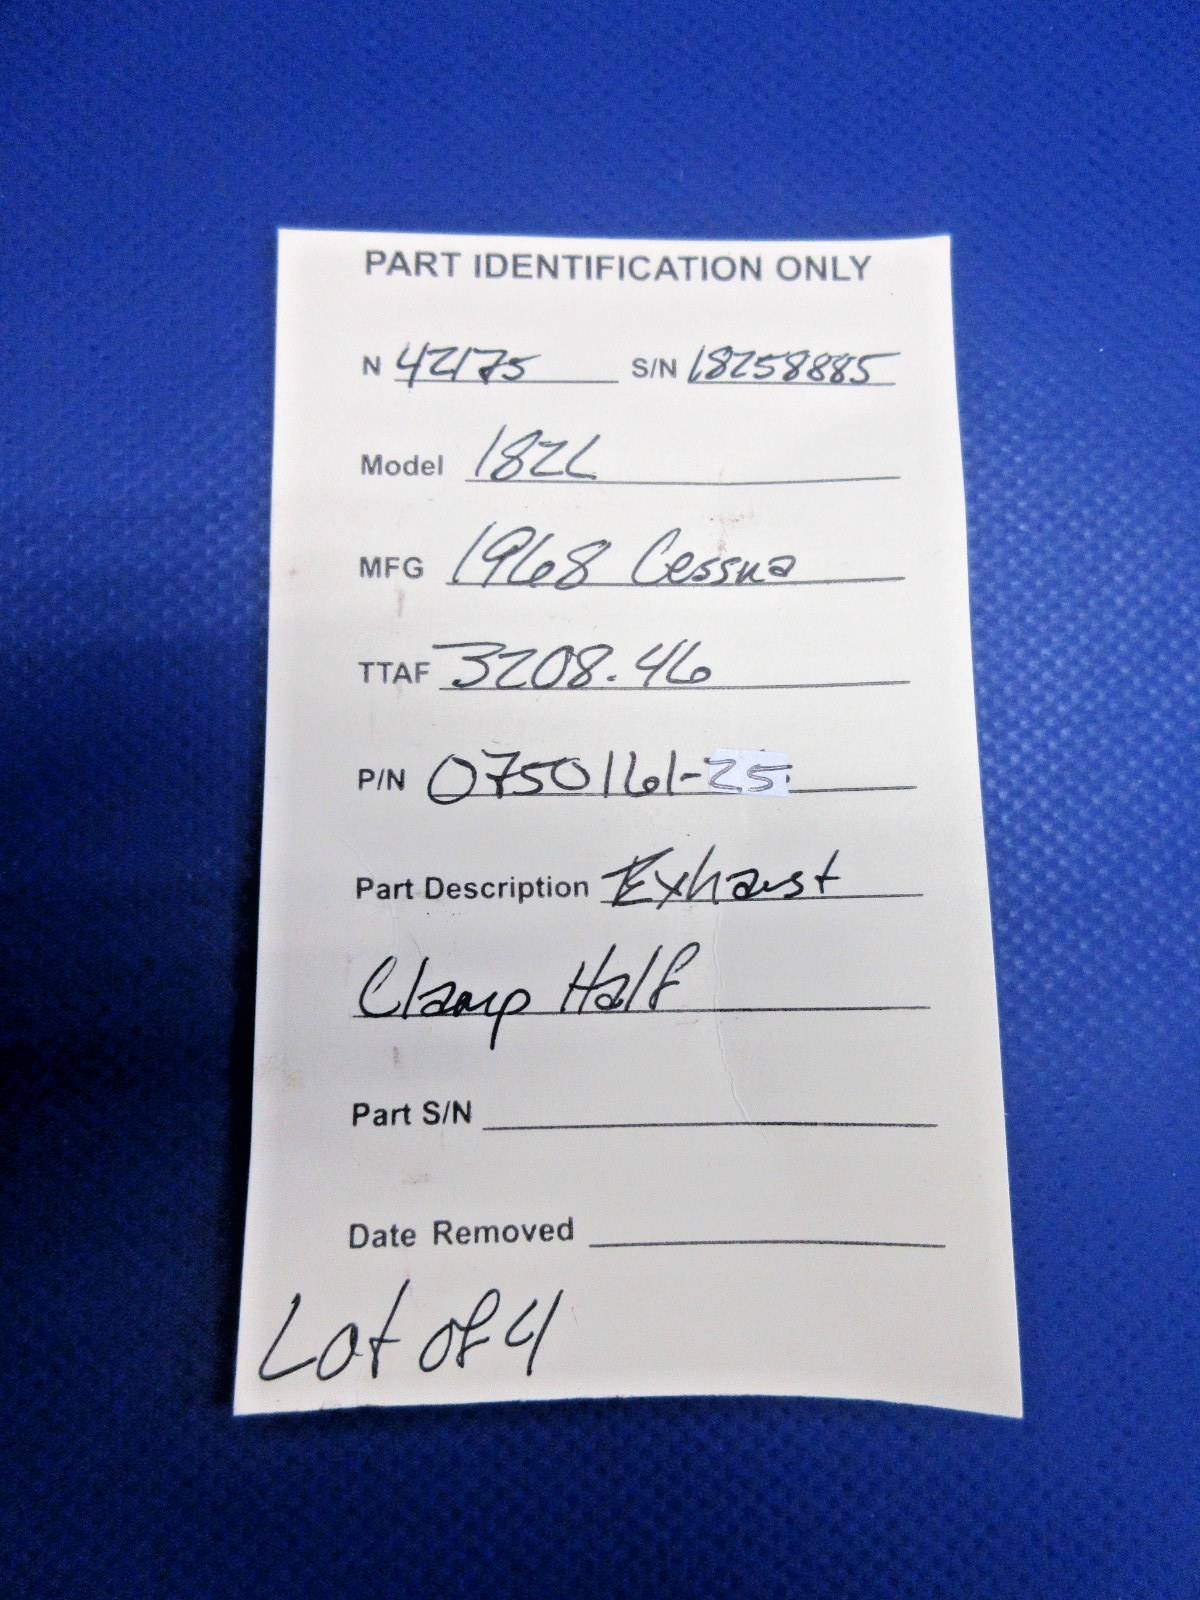 PART IDENTIFICATION ONLY
N 42175 S/N 18258885
Model 182L
MFG 1968 Cessna
TTAF 3208.46
P/N 0750161-25
Part Description Exhaust
Clamp Half
Part S/N
Date Removed
Lot of 4